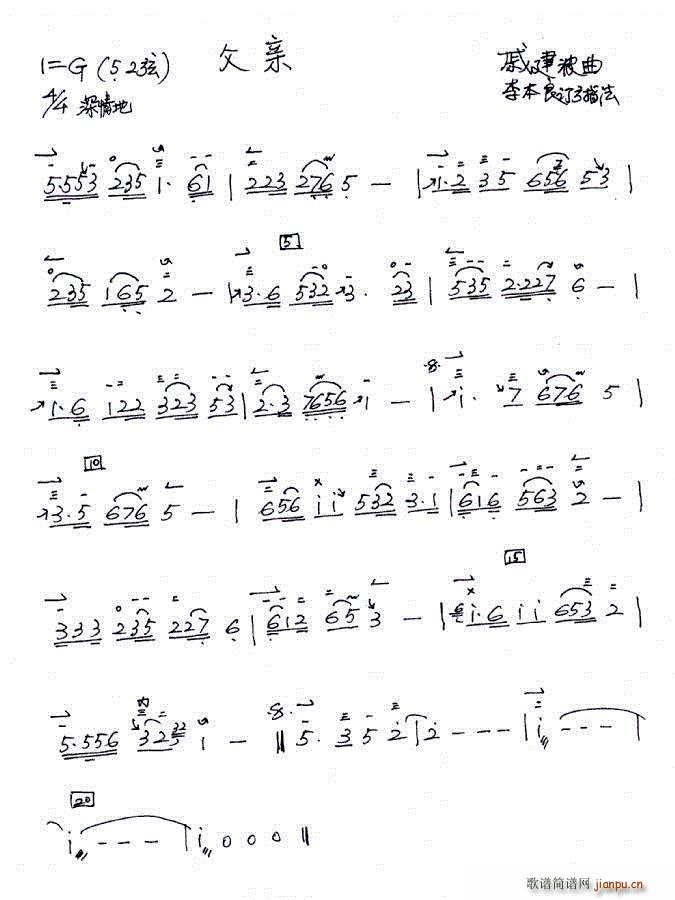 1=G (5̣ 2弦) 父亲 戚建波曲
4/4 深情地 李本良订指法
5.553 235 1. 61 | 223 276 5 — | 1.2 35 656 53 |
5
235 165 2 — | 3.6 532 3. 23 | 535 2.227 6 — |
8
1.6 122 323 53 | 2.3 7656 1 — | i. 7 676 5 |
10
3.5 676 5 — | 656 ii 532 3.1 | 616 563 2 — |
15
333 235 227 6 | 612 65 3 — | i.6 ii 653 2 |
8
5.556 325 i — ‖ 5. 3 5 2 | 2 - - - | i - - - |
20
i - - - | i 0 0 0 ‖
歌谱简谱网
jianpu.cn